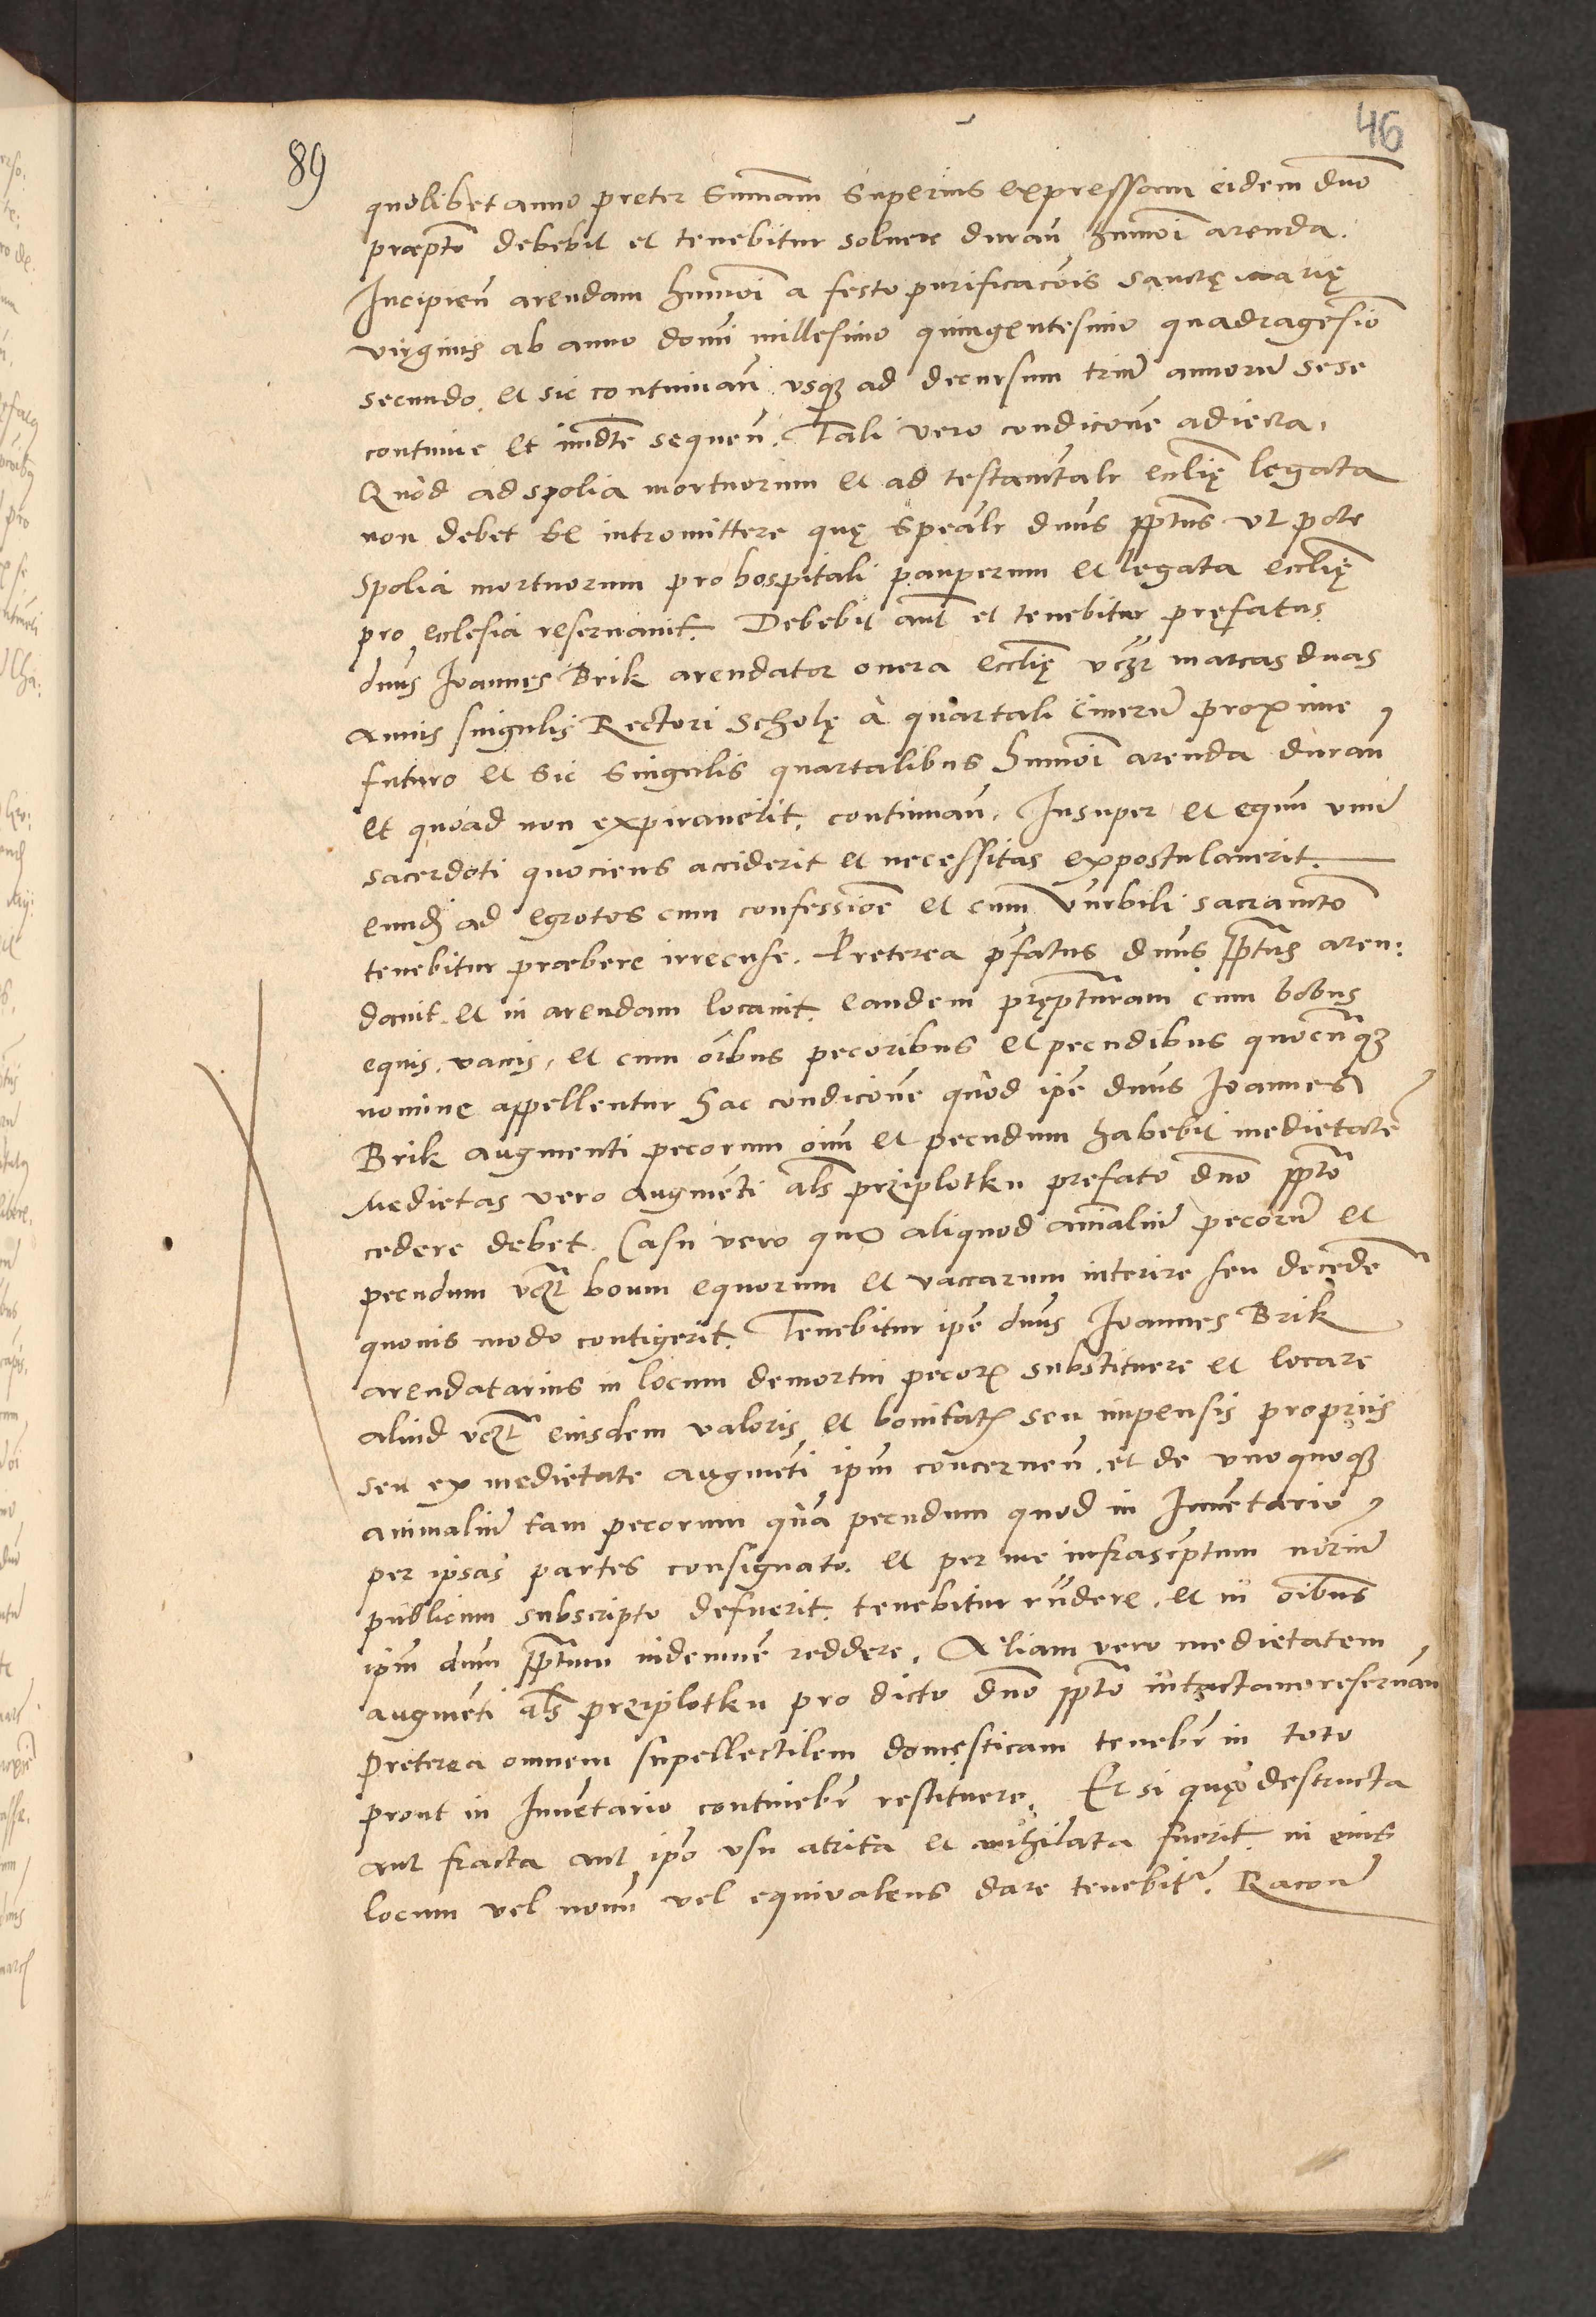 46
89
quolibet anno preter summam superius expressam eidem dno
praepto debebit et tenebitur soluere duran huiusmoi arenda.
Incipien arendam huiusmoi a festo purificacois sanctę marię
virginis ab anno domi millesimo quingentesimo quadragesimo
secundo. et sic continuan. vsq ad decursum triu annoru sese
continue et immdte sequen. Tali vero condicone adiecta.
Quod ad spolia mortuorum et ad testamtalr ecclię legata
non debet se intromittere quę spealr dnus pptus vt pote
spolia mortuorum pro hospitali pauperum et legata ecclię
pro ecclesia reseruauit. Debebit aut et tenebitur pręfatus
dnus Ioannes Brik arendator onera ecclię vczr marcas duas
annis singulis Rectori scholę à quartali cineru proxime
futuro et sic singulis quartalibus huiusmoi arenda duran
et quoad non expirauerit. continuan. Insuper et equm vnu
sacerdoti quociens acciderit et necessitas expostulauerit.
eundi ad egrotos cum confessioe et cum vnrbili sacramto
tenebitur praebere irrecuse. Preterea pfatus dnus pptus aren:
dauit. et in arendam locauit. eandem pręptturam cum bobus
equis. vaccis, et cum oibus pecoribus et pecudibus quocunq
nomine appellentur hac condicione quod ipe dnus Ioannes
Brik augmenti pecorum oim et pecudum habebit medietate
Medietas vero augmeti als przyplotku prefato dno ppto
cedere debet. Casu vero quo aliquod aialiu pecoru et
pecudum vczr boum equorum et vaccarum interire seu decede
quouis modo contigerit. Tenebitur ipe dnus Ioannes Brik
arendatarius in locum demortui pecoris substituere et locare
aliud vczr eiusdem valoris et bonitatis seu impensis propriis
seu ex medietate augmeti ipm concernen. et de vnoquoq
animaliu tam pecorum qua pecudum quod in Inuetario
per ipsas partes consignato. et per me infrascptum notriu
publicum subscripto defuerit. tenebitur rndere. et in oibus
ipm dnm pptum indemne reddere. Aliam vero medietatem
augmeti als przyplotku pro dicto dno ppto intactam reseruan
Preterea omnem supellectilem domesticam tenebr in toto
prout in Inuetario continebr restituere. Et si quęvo destructa
aut fracta aut ipo vsu atrita et anihilata fuerit. in eius
locum vel nouu vel equiualens dare tenebitr. Racone